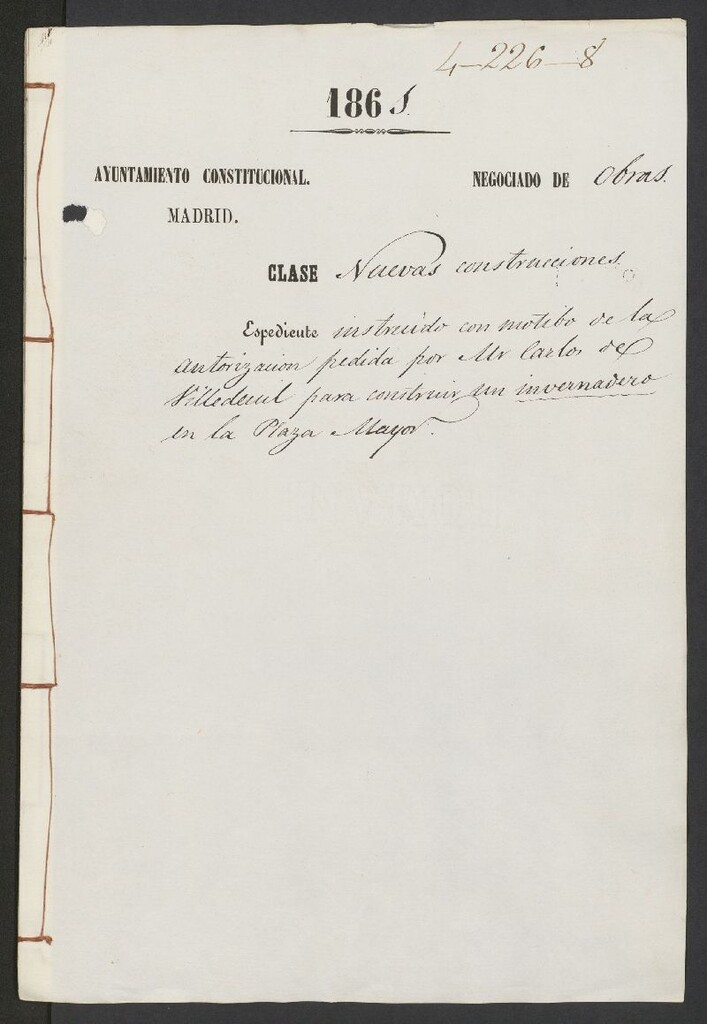 4-226-8
1861.
AYUNTAMIENTO CONSTITUCIONAL.
MADRID.
NEGOCIADO DE Obras.
CLASE Nuevas construcciones.
Espediente instruido con motibo de la
autorizacion pedida por Mr Carlos de
Villedeuil para construir un invernadero
en la Plaza Mayor.